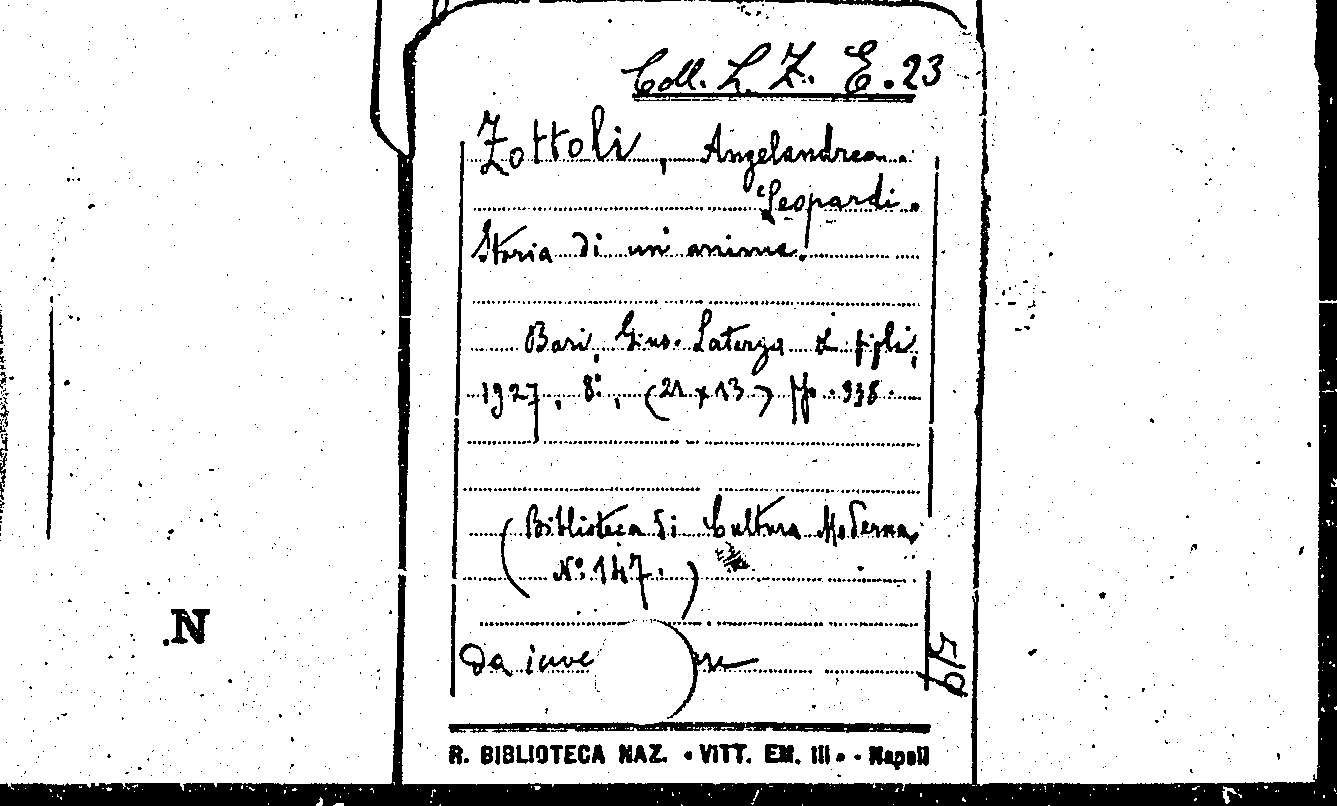 Coll. L. Z. E. 23
Zottoli, Angelandrea.
Leopardi.
Storia di un'anima.
Bari, Gius. Laterza & figli,
1927, 8°, (21 x 13) pp. 338.
(Biblioteca di Cultura Moderna,
N° 147.)
Da
5/9
N.
R. BIBLIOTECA NAZ. « VITT. EM. III » - Napoli